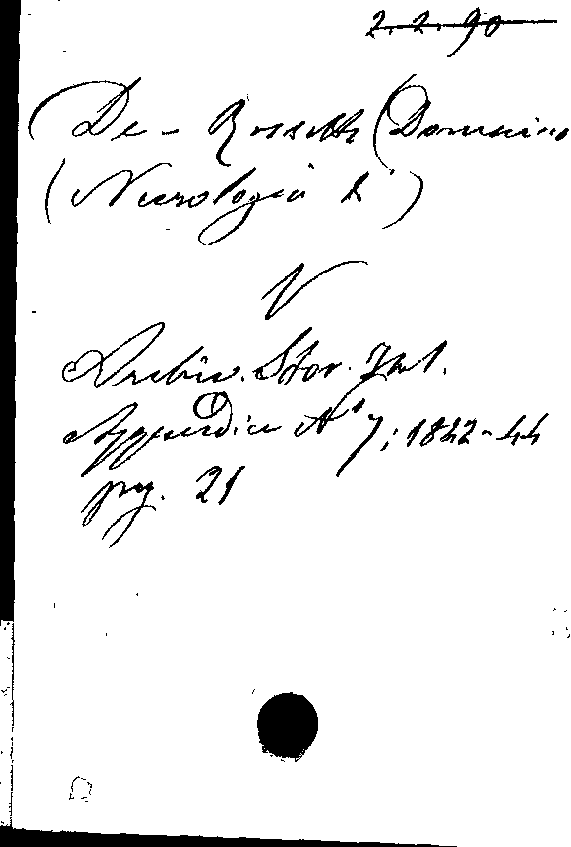 2.2.90
De-Rossetti (Domenico
(Necrologia di)
V
Archiv. Stor. Ital.
Appendice N° 7; 1842-44
pag. 21